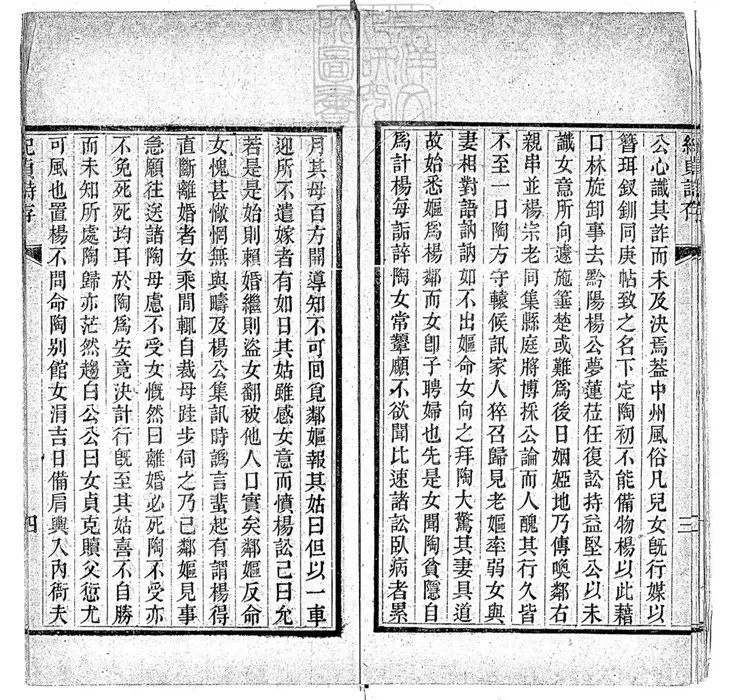 紀貞詩存
公心識其詐而未及決焉蓋中州風俗凡兒女旣行媒以
簪珥釵釧同庚帖致之名下定陶初不能備物楊以此藉
口林旋卸事去黔陽楊公夢蓮莅任復訟持益堅公以未
識女意所向遽施箠楚或難爲後日姻婭地乃傳喚鄰右
親串並楊宗老同集縣庭將博採公論而人醜其行久皆
不至一日陶方守轅候訊家人猝召歸見老嫗率弱女與
妻相對語訥訥如不出嫗命女向之拜陶大驚其妻具道
故始悉嫗爲楊鄰而女卽子聘婦也先是女聞陶貧隱自
爲計楊每詬誶陶女常顰顣不欲聞比速諸訟臥病者累
三
月其母百方開導知不可回覓鄰嫗報其姑曰但以一車
迎所不遣嫁者有如日其姑雖感女意而憤楊訟己曰允
若是是始則賴婚繼則盜女翻被他人口實矣鄰嫗反命
女愧甚慚惘無與疇及楊公集訊時譌言蜚起有謂楊得
直斷離婚者女乘間輒自裁母跬步伺之乃已鄰嫗見事
急願往送諸陶母慮不受女慨然曰離婚必死陶不受亦
不免死死均耳於陶爲安竟決計行旣至其姑喜不自勝
而未知所處陶歸亦茫然趨白公公曰女貞克贖父愆尤
可風也置楊不問命陶別館女涓吉日備肩輿入內衙夫
紀貞詩存
四